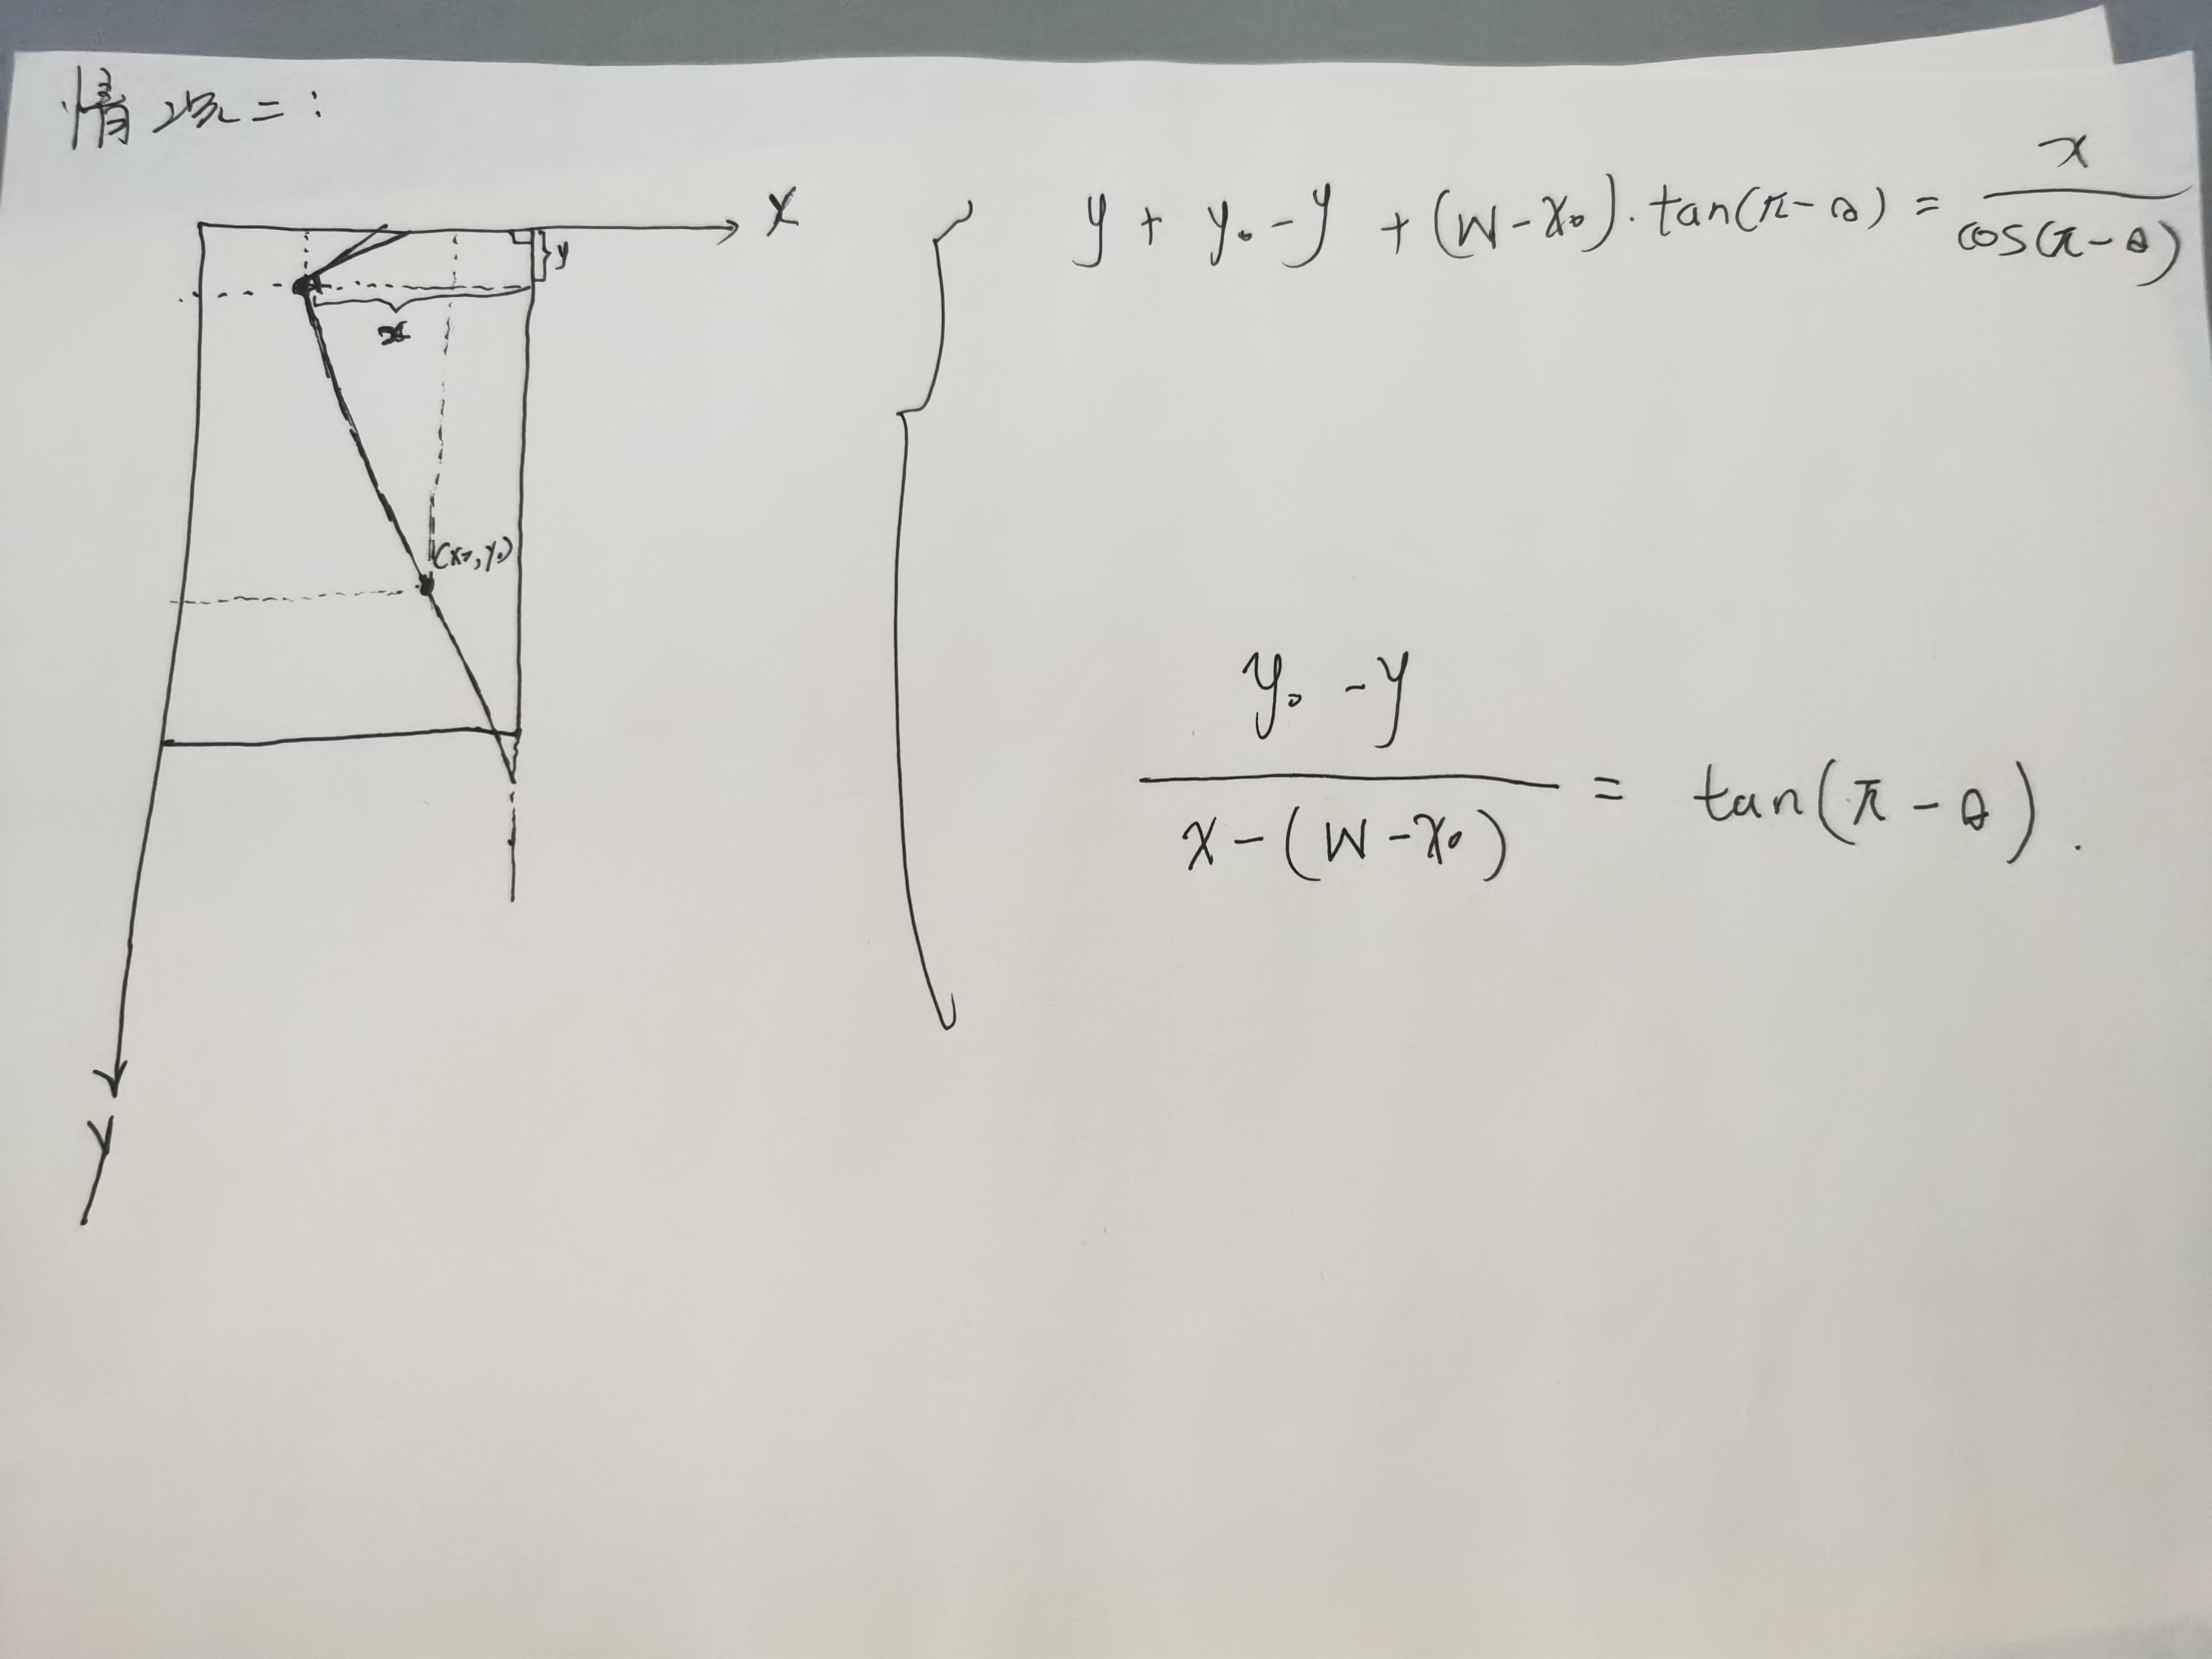 情况二:
X
y
x
(x₀, y₀)
Y
y + y₀ - y + (W - x₀) · tan(π - θ) = x / cos(π - θ)
(y₀ - y) / (x - (W - x₀)) = tan(π - θ).